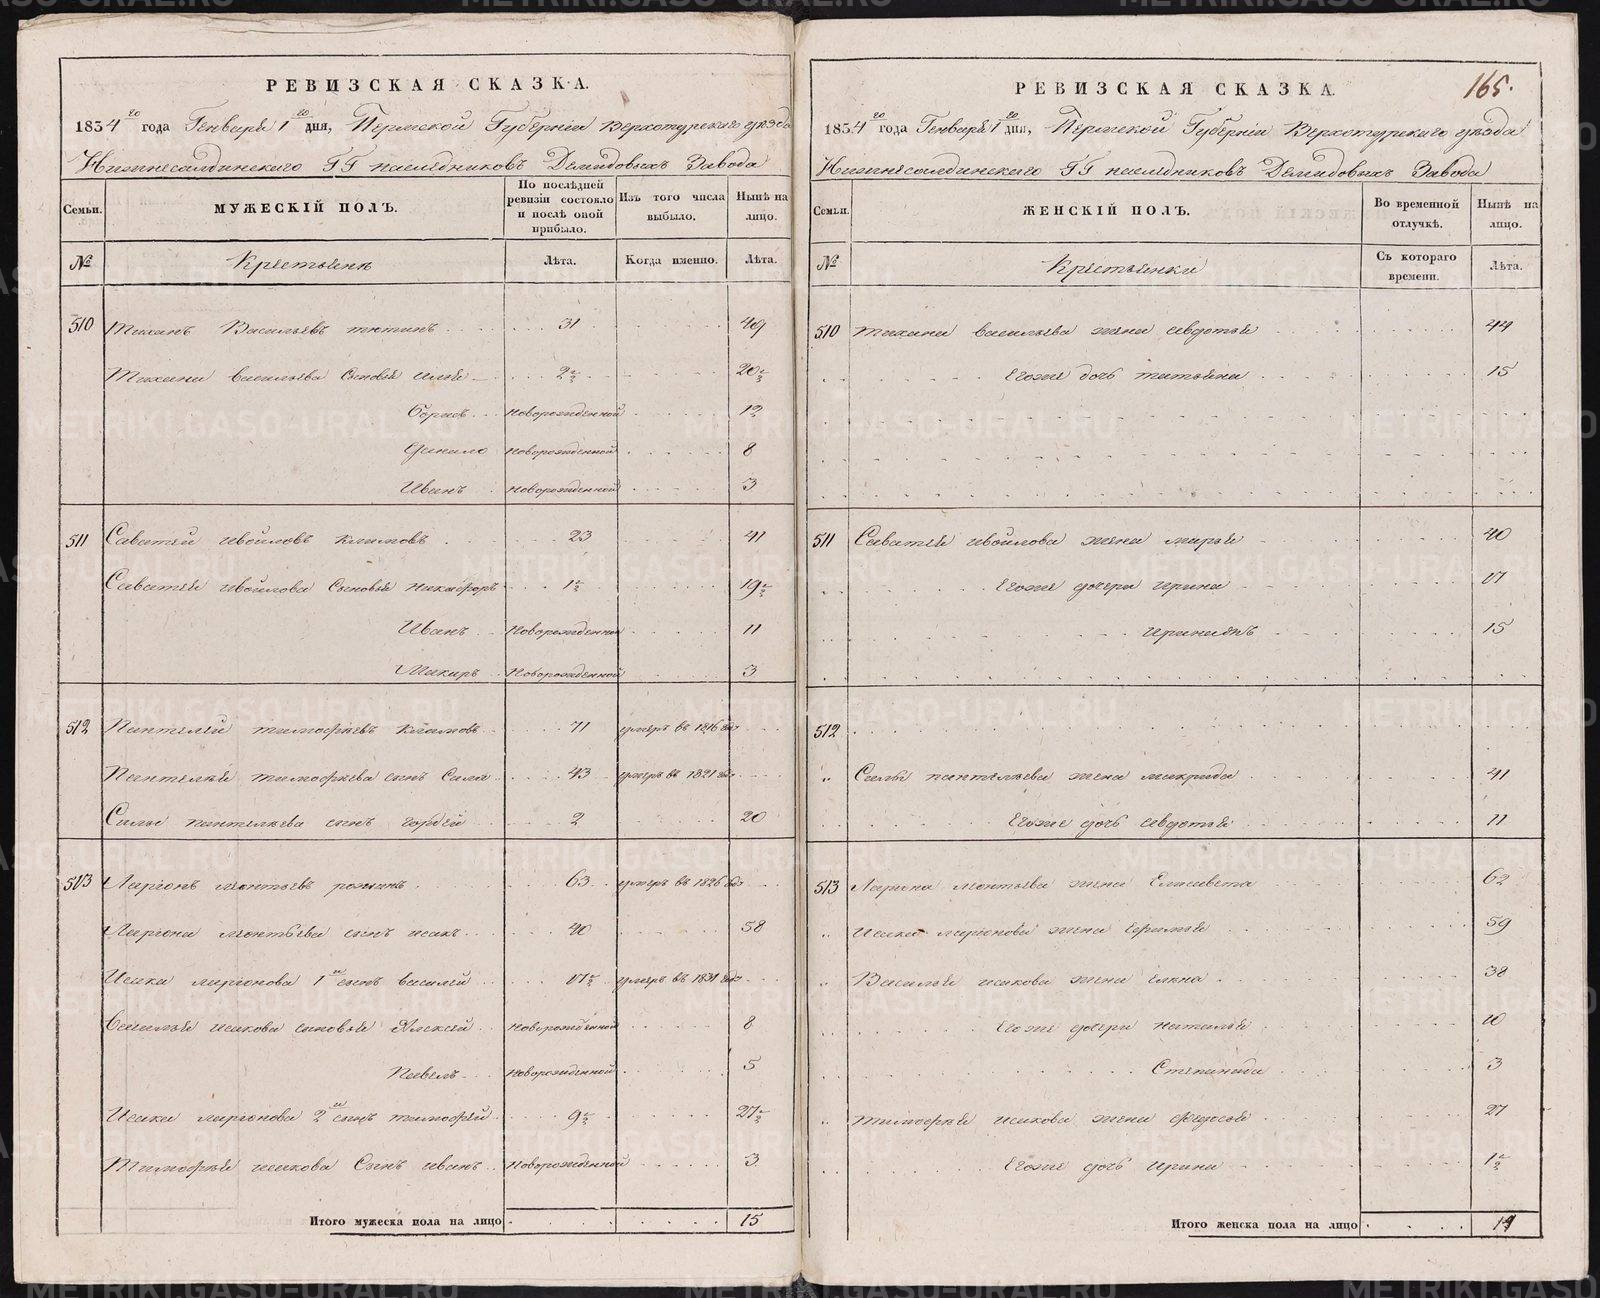 РЕВИЗСКАЯ СКАЗКА.
1834го года Генваря 1го дня, Пермской Губернiи Верхотурскаго уѣзда
Нижнесалдинскаго ГГ наслѣдниковъ Демидовыхъ Завода
Семьи.
МУЖЕСКIЙ ПОЛЪ.
По послѣдней ревизiи состояло и послѣ оной прибыло.
Изъ того числа выбыло.
Нынѣ на лицо.
№
Крестьянѣ
Лѣта.
Когда именно.
Лѣта.
510 Тиханъ Васильевъ тютинъ 31 49
Тихана васильева Сыновья илья 2½ 20½
борисъ новорожденной 12
данило новорожденной 8
Иванъ новорожденной 3
511 Саватей ивойловъ климовъ 23 41
Саватея ивойлова Сыновья никифоръ 1½ 19½
Иванъ новорожденной 11
Макаръ новорожденной 3
512 Пантелей тимофѣевъ климовъ 71 умеръ въ 1816 годѣ
Пантелѣя тимофѣева сынъ Сила 43 умеръ въ 1821 годѣ
Силы пантелѣева сынъ гордей 2 20
513 Ларiонъ леонтьевъ 63 умеръ въ 1826 годѣ
Ларiона леонтьева сынъ исакъ 40 58
Исака ларiонова 1й сынъ василей 17½ умеръ въ 1831 годѣ
Василья исакова сыновья Алексей новорожденной 8
Павелъ новорожденной 5
Исака ларiонова 2й сынъ тимофей 9½ 27½
Тимофѣя исакова Сынъ иванъ новорожденной 3
Итого мужеска пола на лицо 15
165.
РЕВИЗСКАЯ СКАЗКА.
1834го года Генваря 1го дня, Пермской Губернiи Верхотурскаго уѣзда
Нижнесалдинскаго ГГ наслѣдниковъ Демидовыхъ Завода
Семьи.
ЖЕНСКIЙ ПОЛЪ.
Во временной отлучкѣ.
Нынѣ на лицо.
№
Крестьянки
Съ котораго времени.
Лѣта.
510 Тихана васильева жена авдотья 44
Егоже дочь татьяна 15
511 Саватея ивойлова жена марья 40
Егоже дочери ирина 17
15
512
Силы пантелѣева жена макрида 41
Егоже дочь авдотья 11
513 Ларiона леонтьева жена Елисавета 62
Исака ларiонова жена Ефимья 59
Василья исакова жена елена 38
Егоже дочери наталья 10
Степанида 3
Тимофѣя исакова жена федосья 27
Егоже дочь ирина 1½
Итого женска пола на лицо 14
METRIKI.GASO-URAL.RU